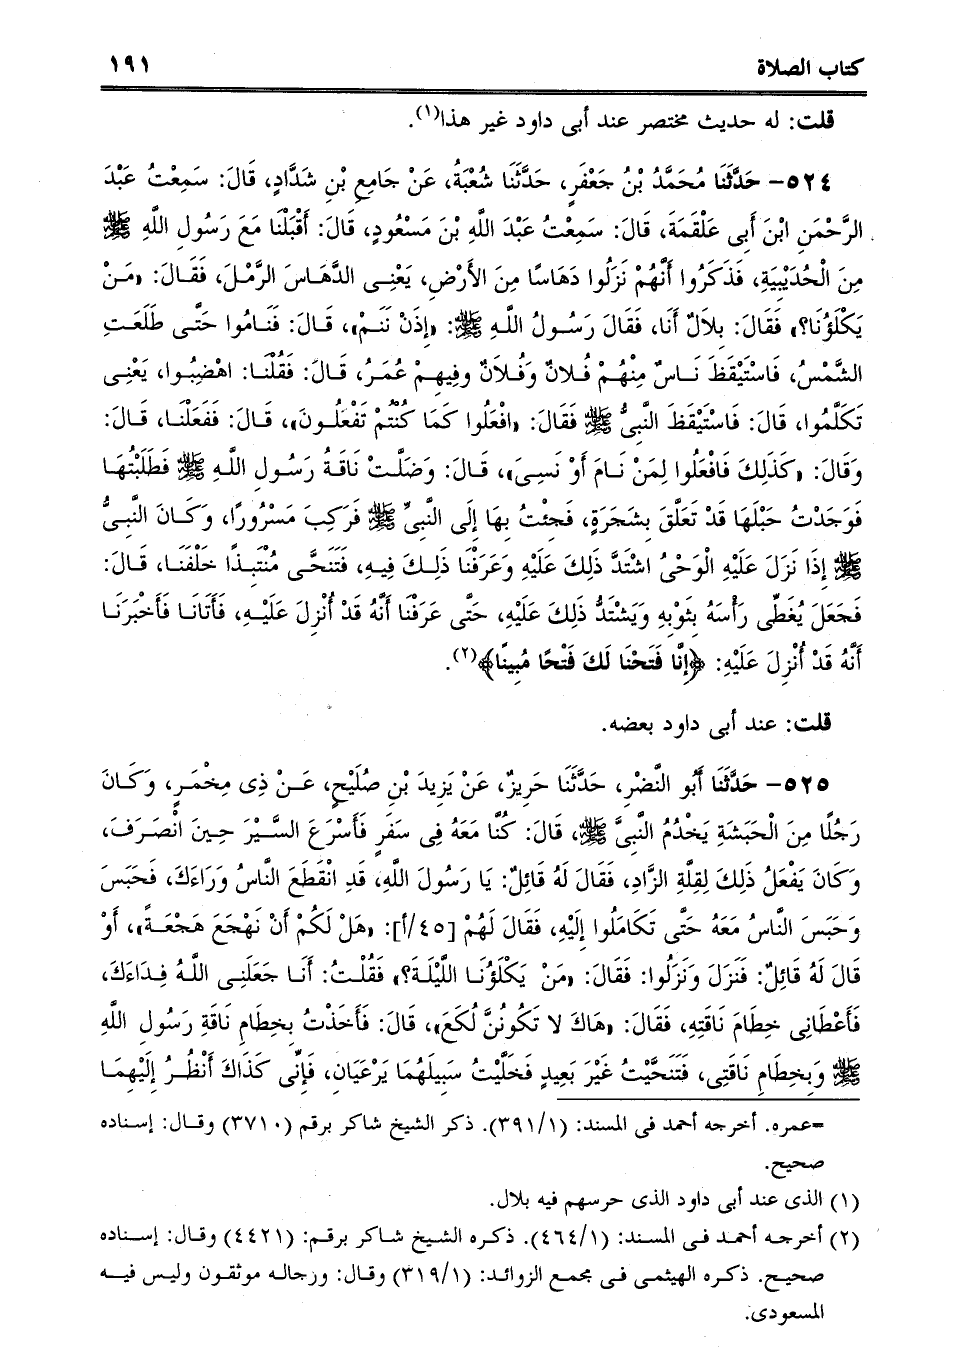 كتاب الصلاة ١٩١
قلت: له حديث مختصر عند أبى داود غير هذا(١).
٥٢٤- حَدَّثَنَا مُحَمَّدُ بْنُ جَعْفَرٍ، حَدَّثَنَا شُعْبَةُ، عَنْ جَامِعِ بْنِ شَدَّادٍ، قَالَ: سَمِعْتُ عَبْدَ
الرَّحْمَنِ ابْنَ أَبِى عَلْقَمَةَ، قَالَ: سَمِعْتُ عَبْدَ اللَّهِ بْنَ مَسْعُودٍ، قَالَ: أَقْبَلْنَا مَعَ رَسُولِ اللَّهِ ﷺ
مِنَ الْحُدَيْبِيَةِ، فَذَكَرُوا أَنَّهُمْ نَزَلُوا دَهَاسًا مِنَ الأَرْضِ، يَعْنِى الدَّهَاسَ الرَّمْلَ، فَقَالَ: «مَنْ
يَكْلَؤُنَا؟» فَقَالَ: بِلاَلٌ أَنَا، فَقَالَ رَسُولُ اللَّهِ ﷺ: «إِذَنْ نَنَمْ»، قَالَ: فَنَامُوا حَتَّى طَلَعَتِ
الشَّمْسُ، فَاسْتَيْقَظَ نَاسٌ مِنْهُمْ فُلاَنٌ وَفُلاَنٌ وفِيهِمْ عُمَرُ، قَالَ: فَقُلْنَا: اهْضِبُوا، يَعْنِى
تَكَلَّمُوا، قَالَ: فَاسْتَيْقَظَ النَّبِىُّ ﷺ فَقَالَ: «افْعَلُوا كَمَا كُنْتُمْ تَفْعَلُونَ»، قَالَ: فَفَعَلْنَا، قَالَ:
وَقَالَ: «كَذَلِكَ فَافْعَلُوا لِمَنْ نَامَ أَوْ نَسِىَ»، قَالَ: وَضَلَّتْ نَاقَةُ رَسُولِ اللَّهِ ﷺ فَطَلَبْتُهَا
فَوَجَدْتُ حَبْلَهَا قَدْ تَعَلَّقَ بِشَجَرَةٍ، فَجِئْتُ بِهَا إِلَى النَّبِىِّ ﷺ فَرَكِبَ مَسْرُورًا، وَكَانَ النَّبِىُّ
ﷺ إِذَا نَزَلَ عَلَيْهِ الْوَحْىُ اشْتَدَّ ذَلِكَ عَلَيْهِ وَعَرَفْنَا ذَلِكَ فِيهِ، فَتَنَحَّى مُنْتَبِذًا خَلْفَنَا، قَالَ:
فَجَعَلَ يُغَطِّى رَأْسَهُ بِثَوْبِهِ وَيَشْتَدُّ ذَلِكَ عَلَيْهِ، حَتَّى عَرَفْنَا أَنَّهُ قَدْ أُنْزِلَ عَلَيْهِ، فَأَتَانَا فَأَخْبَرَنَا
أَنَّهُ قَدْ أُنْزِلَ عَلَيْهِ: ﴿إِنَّا فَتَحْنَا لَكَ فَتْحًا مُبِينًا﴾(٢).
قلت: عند أبى داود بعضه.
٥٢٥- حَدَّثَنَا أَبُو النَّضْرِ، حَدَّثَنَا حَرِيزٌ، عَنْ يَزِيدَ بْنِ صُلَيْحٍ، عَنْ ذِى مِخْمَرٍ، وَكَانَ
رَجُلًا مِنَ الْحَبَشَةِ يَخْدُمُ النَّبِىَّ ﷺ، قَالَ: كُنَّا مَعَهُ فِى سَفَرٍ فَأَسْرَعَ السَّيْرَ حِينَ انْصَرَفَ،
وَكَانَ يَفْعَلُ ذَلِكَ لِقِلَّةِ الزَّادِ، فَقَالَ لَهُ قَائِلٌ: يَا رَسُولَ اللَّهِ، قَدِ انْقَطَعَ النَّاسُ وَرَاءَكَ، فَحَبَسَ
وَحَبَسَ النَّاسُ مَعَهُ حَتَّى تَكَامَلُوا إِلَيْهِ، فَقَالَ لَهُمْ [٤٥/أ]: «هَلْ لَكُمْ أَنْ نَهْجَعَ هَجْعَةً»، أَوْ
قَالَ لَهُ قَائِلٌ: فَنَزَلَ وَنَزَلُوا: فَقَالَ: «مَنْ يَكْلَؤُنَا اللَّيْلَةَ؟» فَقُلْتُ: أَنَا جَعَلَنِى اللَّهُ فِدَاءَكَ،
فَأَعْطَانِى خِطَامَ نَاقَتِهِ، فَقَالَ: «هَاكَ لا تَكُونَنَّ لُكَعَ»، قَالَ: فَأَخَذْتُ بِخِطَامِ نَاقَةِ رَسُولِ اللَّهِ
ﷺ وَبِخِطَامِ نَاقَتِى، فَتَنَحَّيْتُ غَيْرَ بَعِيدٍ فَخَلَّيْتُ سَبِيلَهُمَا يَرْعَيَانِ، فَإِنِّى كَذَاكَ أَنْظُرُ إِلَيْهِمَا
=عمره. أخرجه أحمد فى المسند: (٣٩١/١). ذكر الشيخ شاكر برقم (٣٧١٠) وقال: إسناده
صحيح.
(١) الذى عند أبى داود الذى حرسهم فيه بلال.
(٢) أخرجه أحمد فى المسند: (٤٦٤/١). ذكره الشيخ شاكر برقم: (٤٤٢١) وقال: إسناده
صحيح. ذكره الهيثمى فى مجمع الزوائد: (٣١٩/١) وقال: ورجاله موثقون وليس فيه
المسعودى.